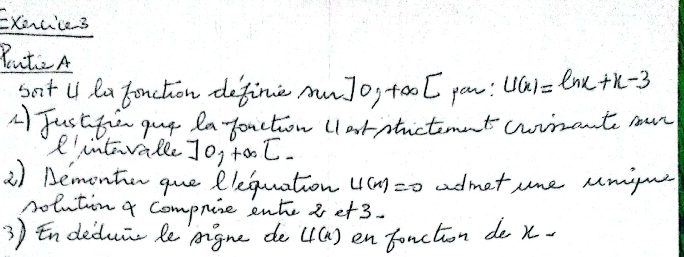 Exercice 3
Partie A
Soit U la fonction définie sur ]0;+∞[ par : U(x) = lnx + x - 3
1) Justifier que la fonction U est strictement croissante sur
l'intervalle ]0;+∞[.
2) Demontrer que l'équation U(x) = 0 admet une unique
solution α comprise entre 2 et 3.
3) En déduire le signe de U(x) en fonction de x.